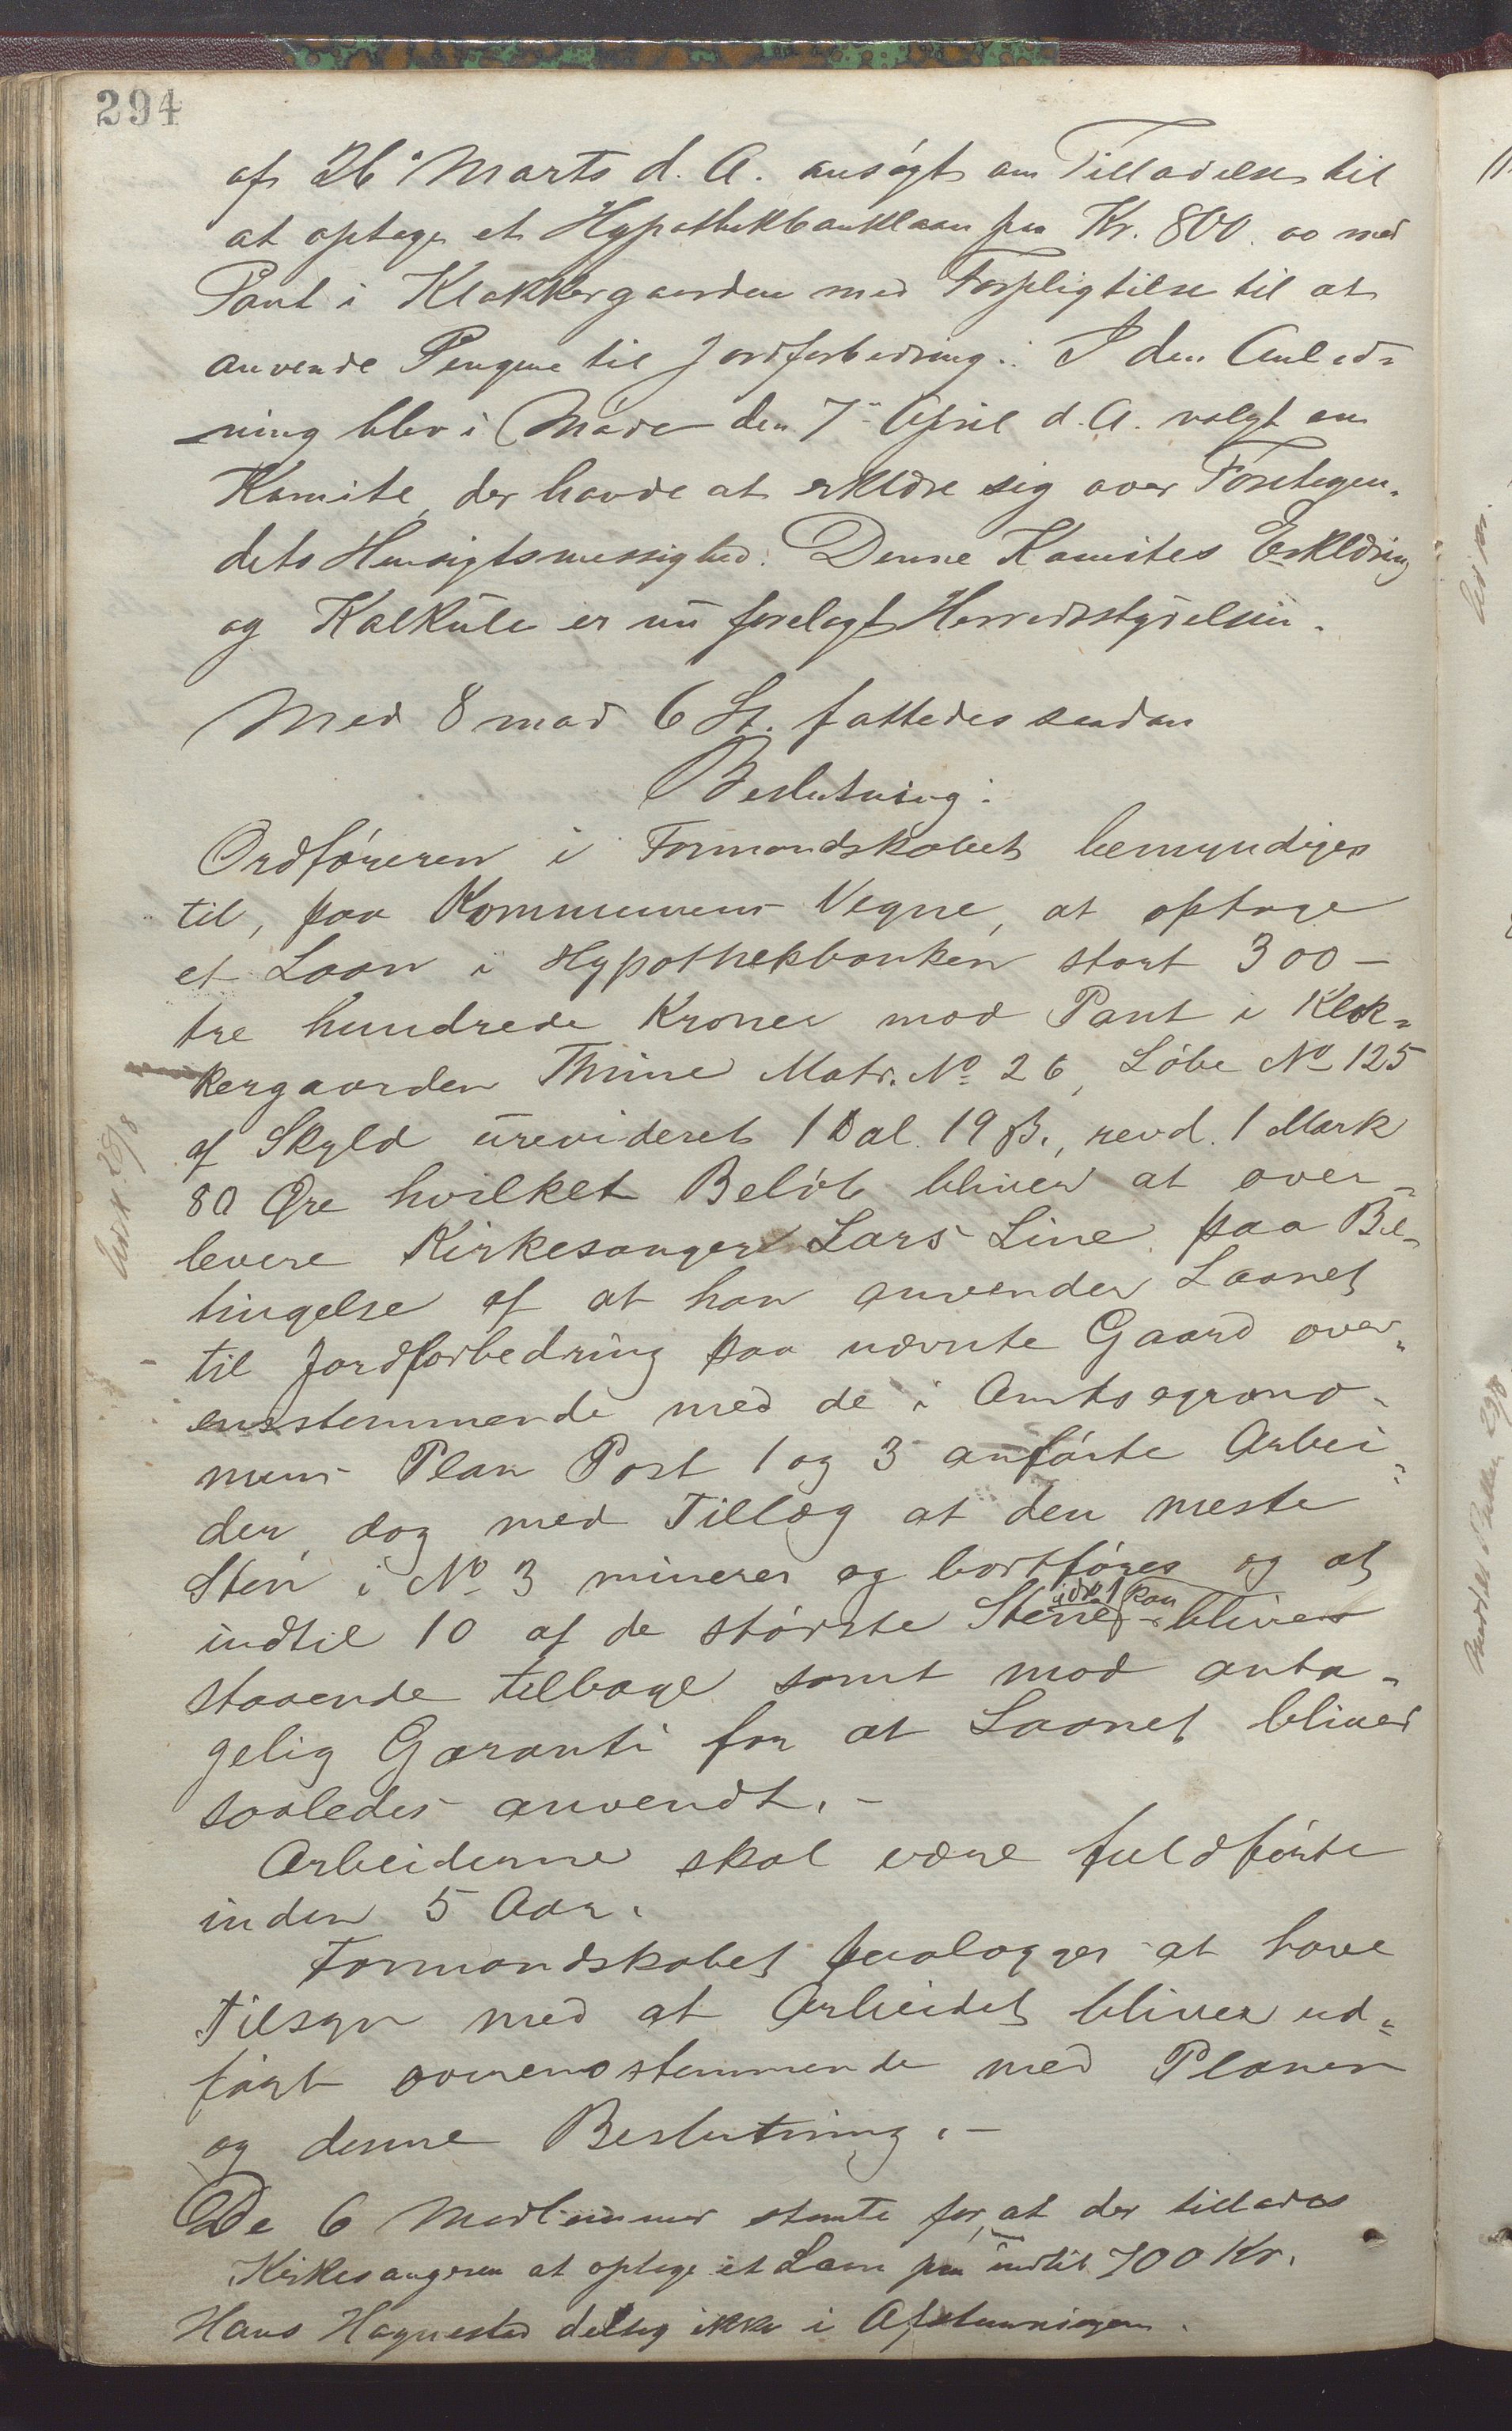 294
af 26" Marts d. A. ansøgt om Tilladelse til
at optage et Hypothekbanklaan paa Kr. 800.00 med
Pant i Klokkergaarden med Forpligtelse til at
anvende Pengene til Jordforbedring. I den Anled-
ning blev i Møde den 7" April d. A. valgt en
Komite, der havde at erklære sig over Foretagen-
dets Hensigtsmessighed. Denne Komites Erklæring
og Kalkule er nu forelagt Herredsstyrelsen.
Med 8 mod 6 St. fattedes saadan
Beslutning:
Ordføreren i Formandskabet bemyndiges
til, paa Kommunens Vegne, at optage
et Laan i Hypothekbanken stort 300 –
tre hundrede Kroner mod Pant i Klok-
kergaarden Thime Matr. No 26, Løbe No 125
af Skyld urevideret 1 Dal. 19 β., revd. 1 Mark
80 Øre hvilket Beløb bliver at over-
levere Kirkesanger Lars Line paa Be-
tingelse af at han anvender Laanet
til Jordforbedring paa nævnte Gaard over-
ensstemmende med de i Amtsagrono-
mens Plan Post 1 og 3 anførte Arbei-
der, dog med Tillæg at den meste
Sten i No 3 mineres og bortføres og at
indtil 10 af de største Stene i No 1 kan bliver
staaende tilbage samt mod anta-
gelig Garanti for at Laanet bliver
saaledes anvendt. –
Arbeiderne skal være fuldførte
inden 5 Aar.
Formandskabet paalægges at have
Tilsyn med at Arbeidet bliver ud-
ført overensstemmende med Planen
og denne Beslutning. –
De 6 Medlemmer stemte for, at der tillades
Kirkesangeren at optage et Laan paa indtil 700 Kr.
Hans Haugnestad deltog ikke i Afstemningen.